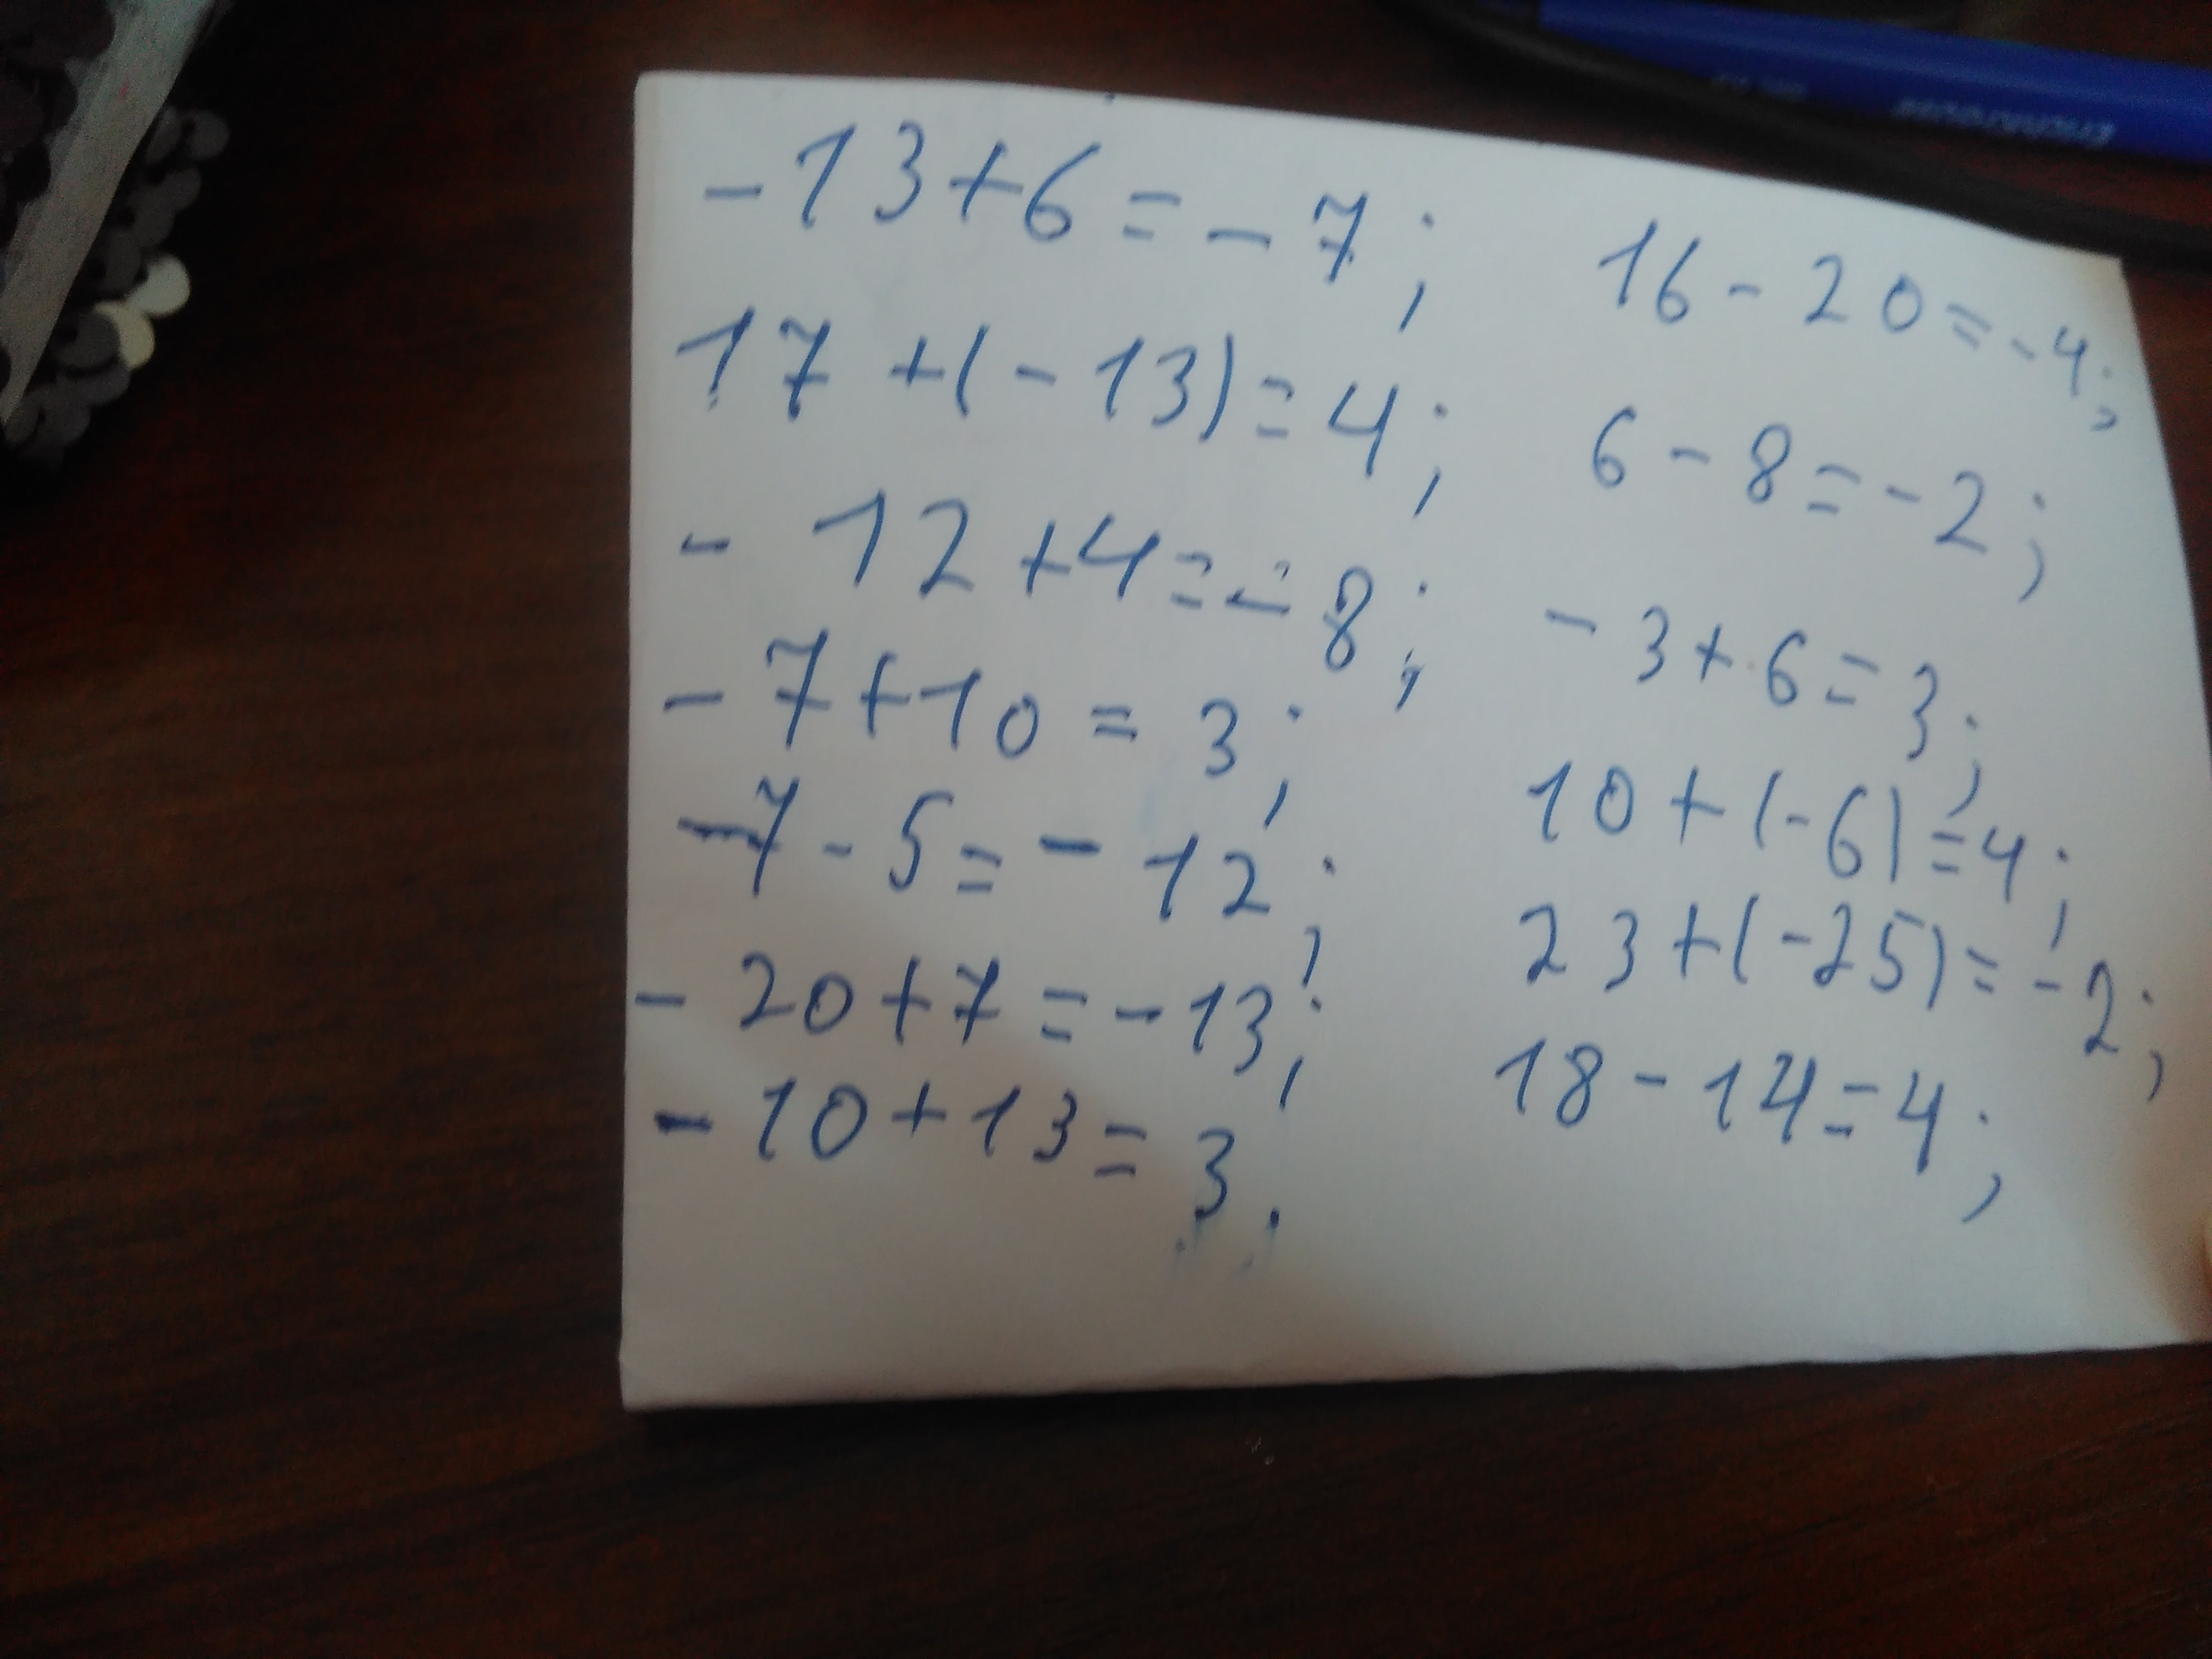 -13+6=-7; 16-20=-4;
17+(-13)=4; 6-8=-2;
-12+4=-8; -3+6=3;
-7+10=3; 10+(-6)=4;
-7-5=-12; 23+(-25)=-2;
-20+7=-13; 18-14=4;
-10+13=3.